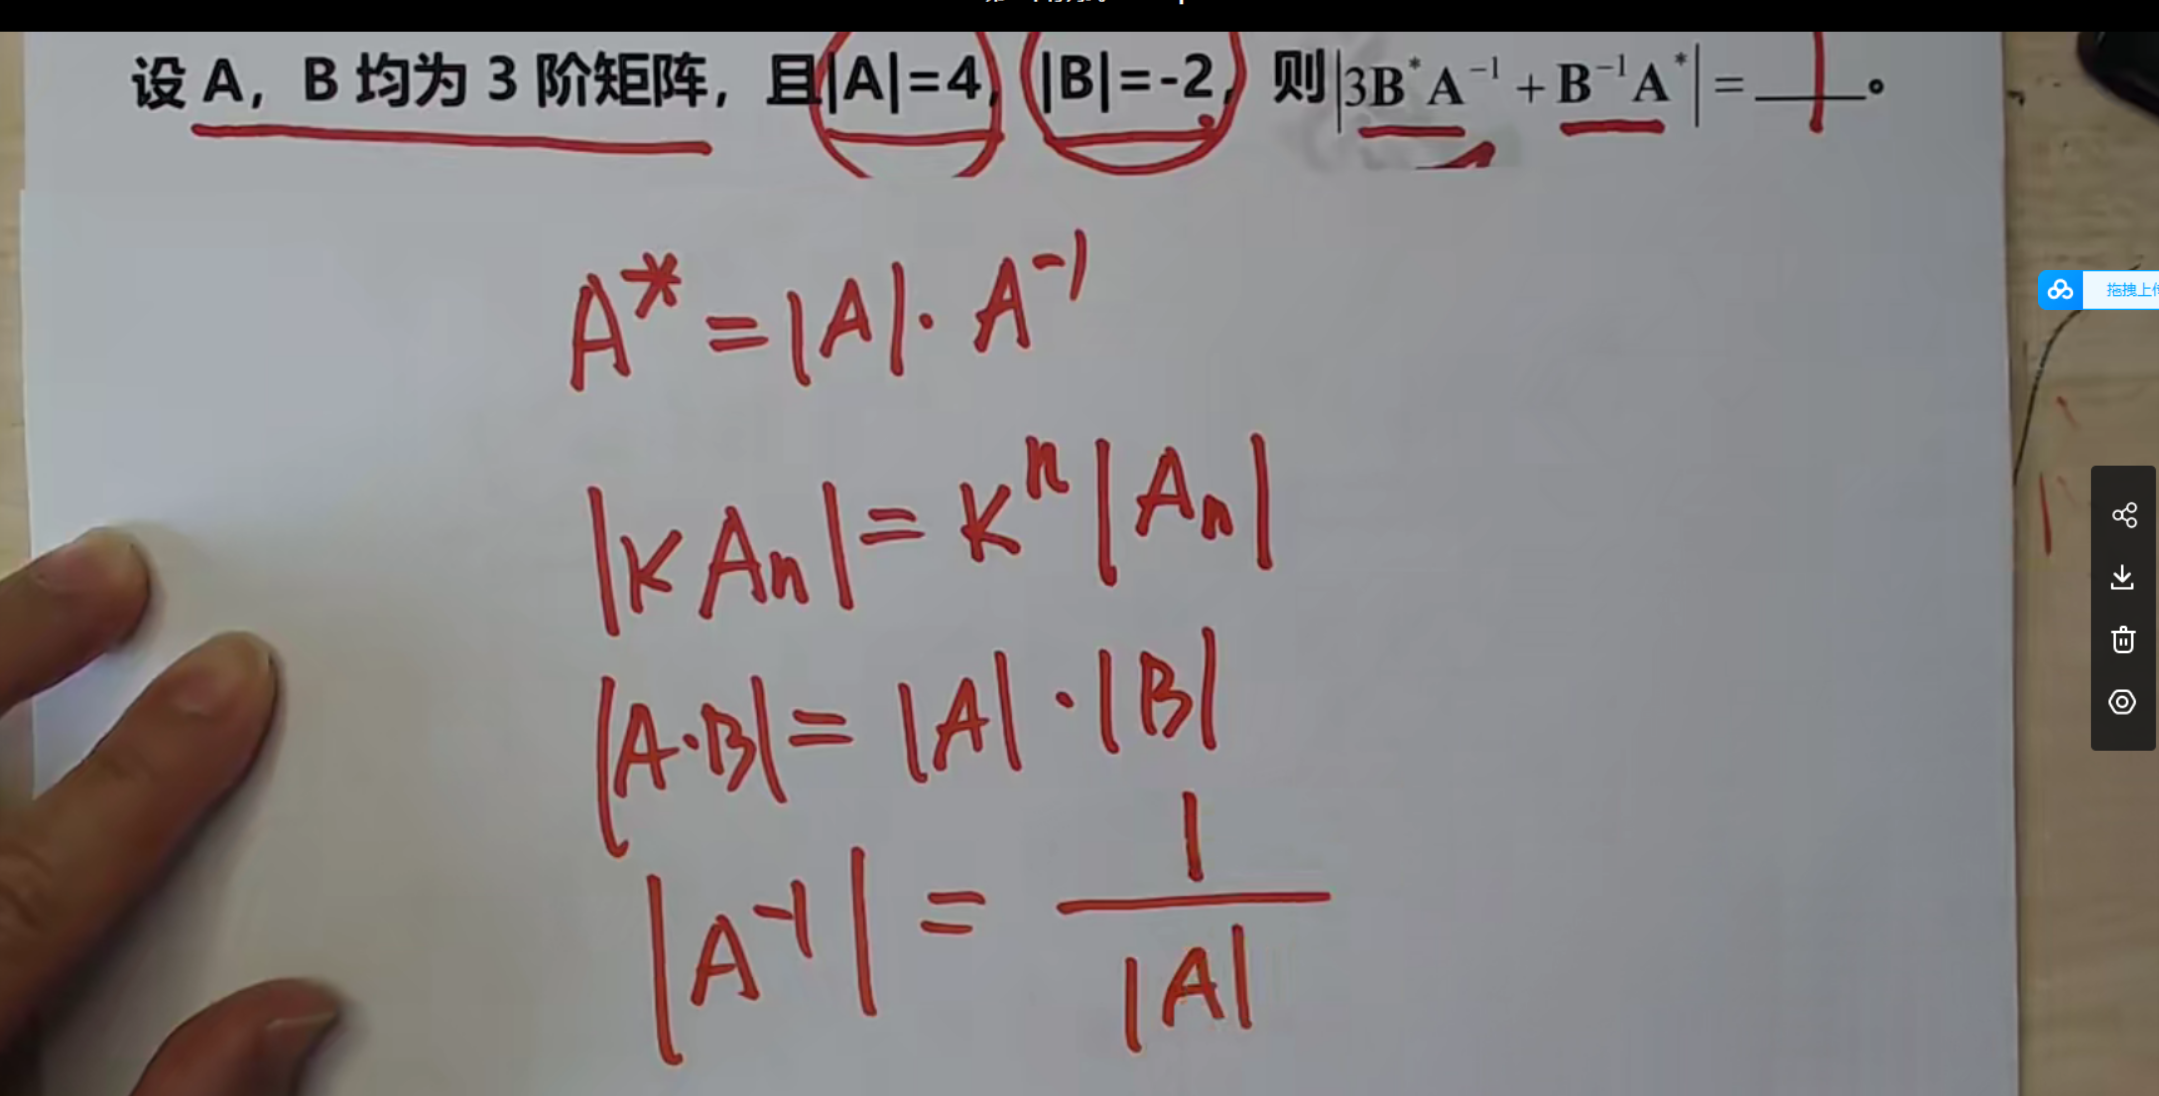 设 A，B 均为 3 阶矩阵，且|A|=4，|B|=-2，则|3B*A⁻¹+B⁻¹A*|=____。
A*=|A|·A⁻¹
拖拽上传
|KAn|=Kⁿ|An|
|A·B|=|A|·|B|
|A⁻¹|=1/|A|